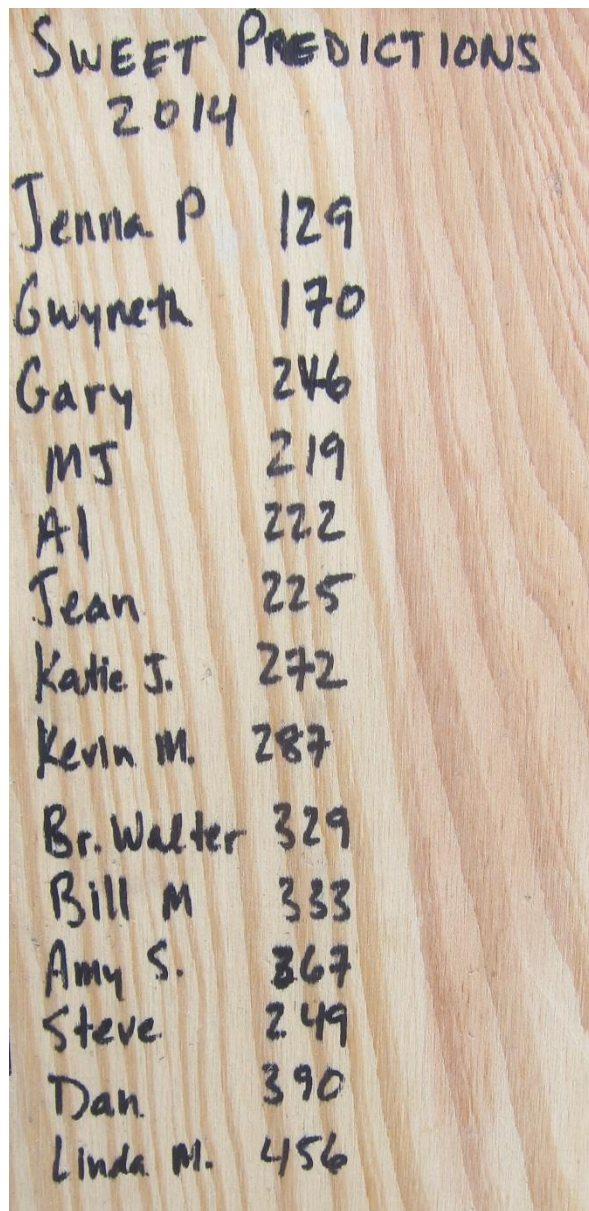 SWEET PREDICTIONS
2014
Jenna P 129
Gwyneth 170
Gary 246
MJ 219
Al 222
Jean 225
Katie J. 272
Kevin M. 287
Br. Walter 329
Bill M 333
Amy S. 367
Steve 249
Dan 390
Linda M. 456